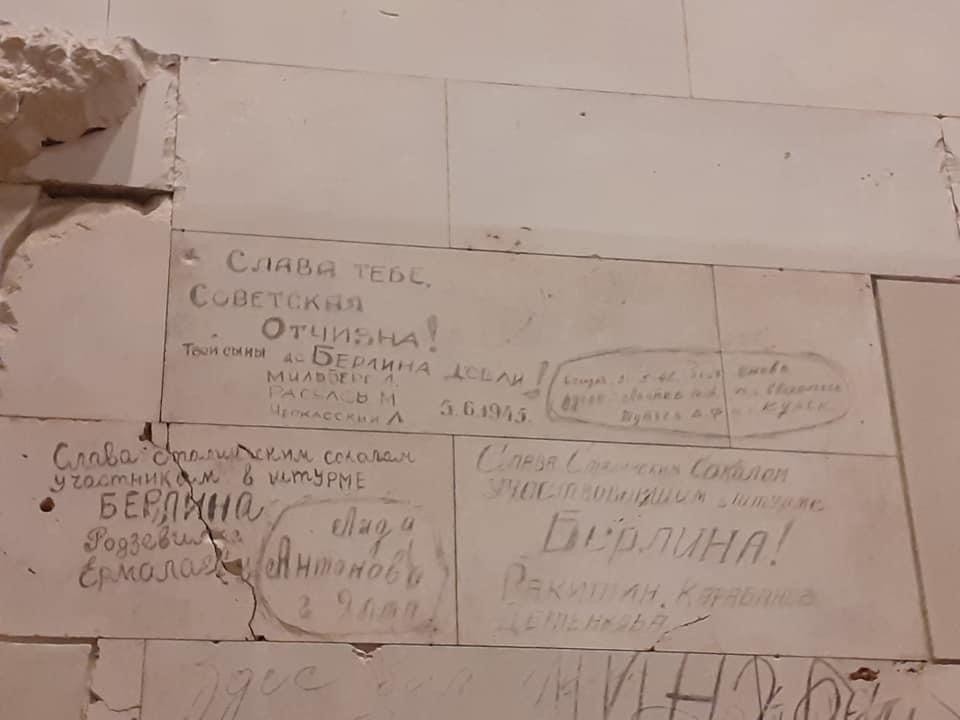 СЛАВА ТЕБЕ,
СОВЕТСКАЯ
ОТЧИЗНА!
Твои сыны до БЕРЛИНА дошли!
МИЛЬБЕРГ Л.
РАССАСЬ М
ЧЕРКАССКИЙ Л
5.6.1945.
КУРСК
Слава Сталинским соколам
участникам в штурме
БЕРЛИНА
Родзевич
Ермолаев
Лида
Антонова
г Ялта
Слава Сталинским Соколам
участвовавшим в штурме
БЕРЛИНА!
РАКИТИН, КАРАБАНОВ
ДЕТЕНКОВА
Здес был МИН